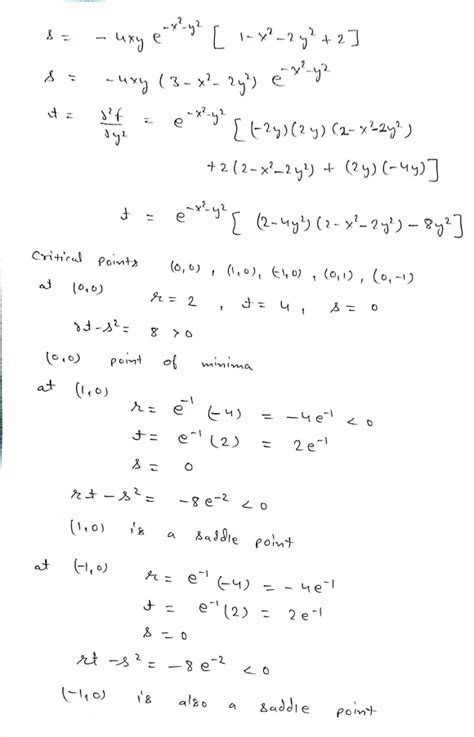 s = - 4xy e^{-x²-y²} [ 1-x²-2y²+2]
s = -4xy (3-x²-2y²) e^{-x²-y²}
t = ∂²f/∂y² = e^{-x²-y²} [(-2y)(2y)(2-x²-2y²)
+2(2-x²-2y²) + (2y)(-4y)]
t = e^{-x²-y²} [ (2-4y²)(2-x²-2y²) - 8y²]
Critical points (0,0), (1,0), (-1,0), (0,1), (0,-1)
at (0,0) r = 2 , t = 4 , s = 0
rt-s² = 8 >0
(0,0) point of minima
at (1,0)
r = e^{-1} (-4) = -4e^{-1} < 0
t = e^{-1} (2) = 2e^{-1}
s = 0
rt-s² = -8e^{-2} <0
(1,0) is a saddle point
at (-1,0)
r = e^{-1} (-4) = -4e^{-1}
t = e^{-1} (2) = 2e^{-1}
s = 0
rt-s² = -8e^{-2} <0
(-1,0) is also a saddle point